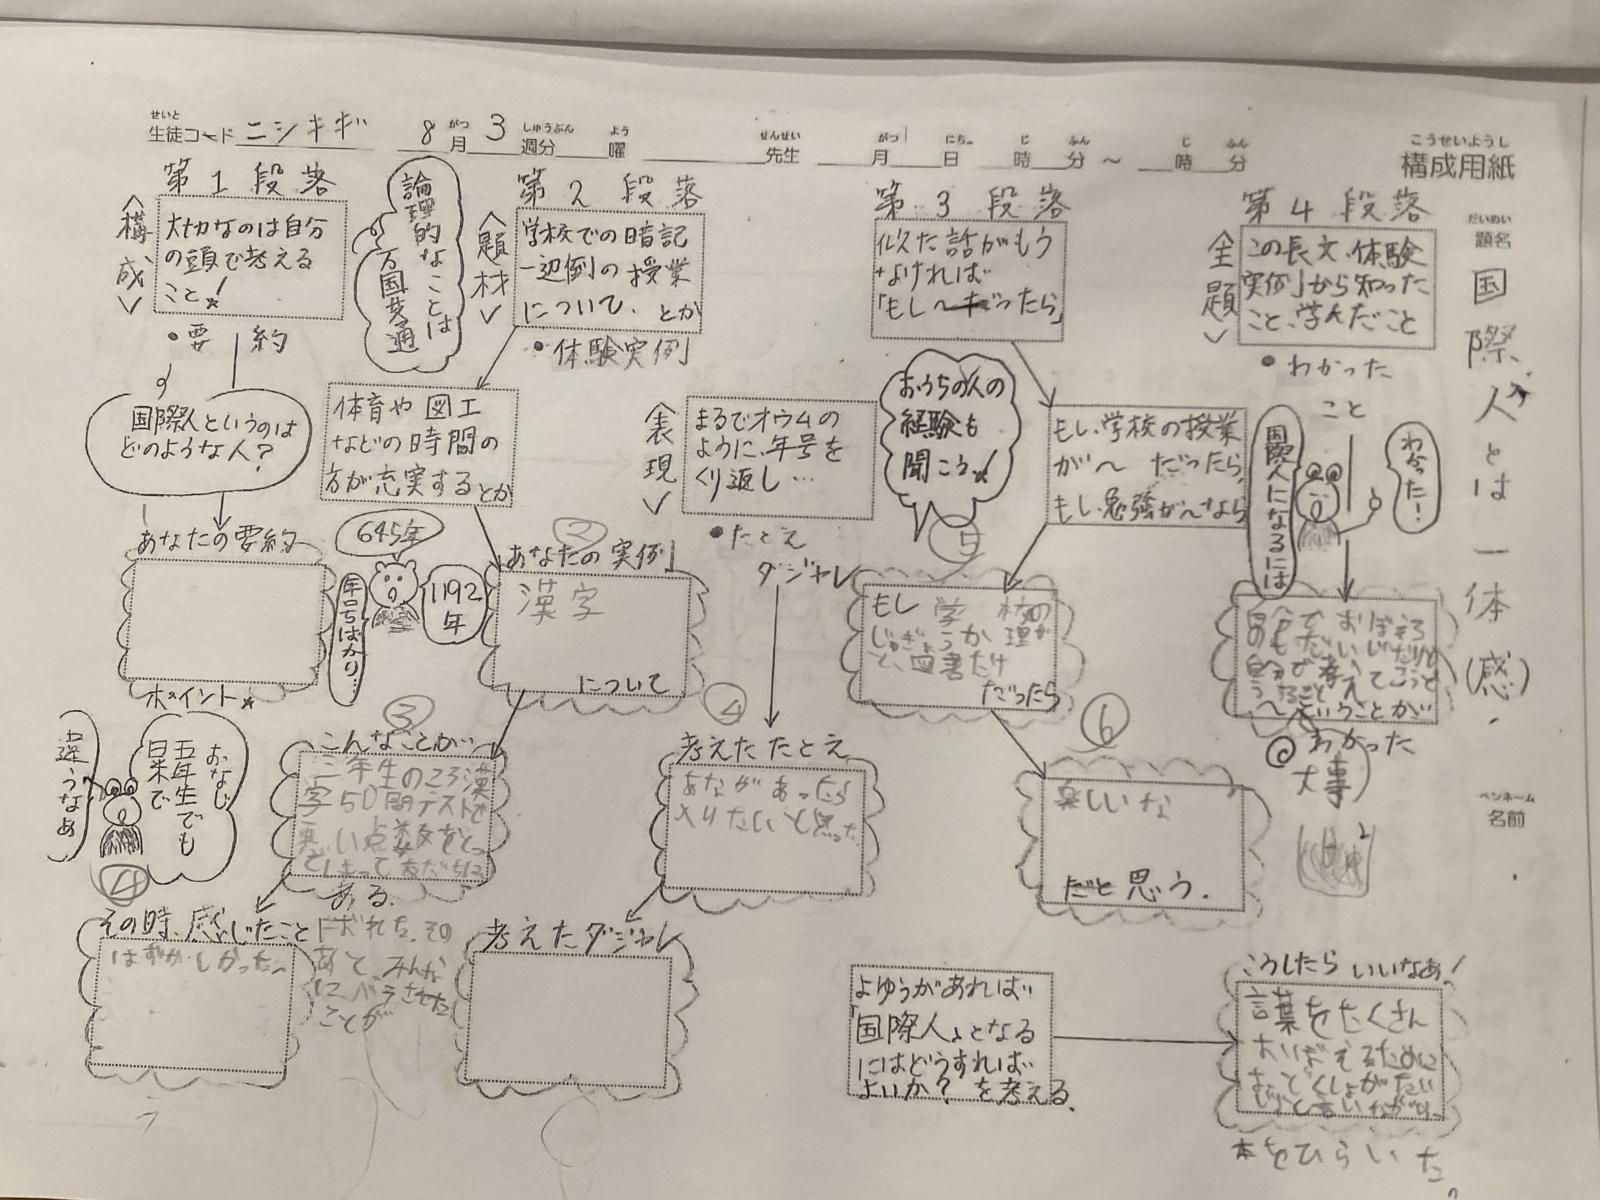 せいと
生徒コード ニシキギ 8月 3週分 曜 先生 月 日 時 分 ～ 時 分
がつ しゅうぶん よう せんせい がつ にち じ ふん じ ふん
こうせいようし
構成用紙
だいめい
題名
国際人とは一体(感)
ペンネーム
名前
第1段落
<構成>
大切なのは自分
の頭で考える
こと!
・要約
国際人というのは
どのような人?
あなたの要約
ポイント
論理的なことは
万国共通
第2段落
<題材>
学校での暗記
一辺倒の授業
について、とか
・体験実例
体育や図工
などの時間の
方が充実するとか
645年
1192年
年号ばかり…
②
あなたの実例
漢字
について
③
こんなことが
三年生のころ漢
字50問テストを
悪い点数をとっ
てしまって友だちに
ある。
おなじ
五年生でも
日本で
違うなあ
④
その時、感じたこと
はずかしかった。
ばれた。その
あと、みんな
にバラされた
ことが
<表現>
まるでオウムの
ように、年号を
くり返し…
・たとえ
ダジャレ
④
考えたたとえ
あながあったら
入りたいと思った
考えたダジャレ
第3段落
似た話がもう
なければ
「もし～だったら」
おうちの人の
経験も
聞こう!
もし、学校の授業
が～だったら
もし、勉強が～なら
⑤
もし学校の
じゅぎょうが理か
と、図書だけ
だったら
⑥
楽しいな
だと思う.
よゆうがあれば
「国際人」となる
にはどうすれば
よいか?を考える.
第4段落
<主題>
この長文、体験
実例から知った
こと、学んだこと
・わかった
こと
国際人になるには
わかった!
わかった
大事
こうしたらいいなあ!
言葉をたくさん
おぼえるために
本をひらいた。